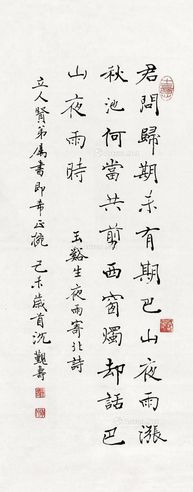 君問歸期未有期巴山夜雨漲
秋池何當共剪西窗燭却話巴
山夜雨時
玉谿生夜雨寄北詩
立人賢弟属書即希正擬
己未歲首沉觀壽